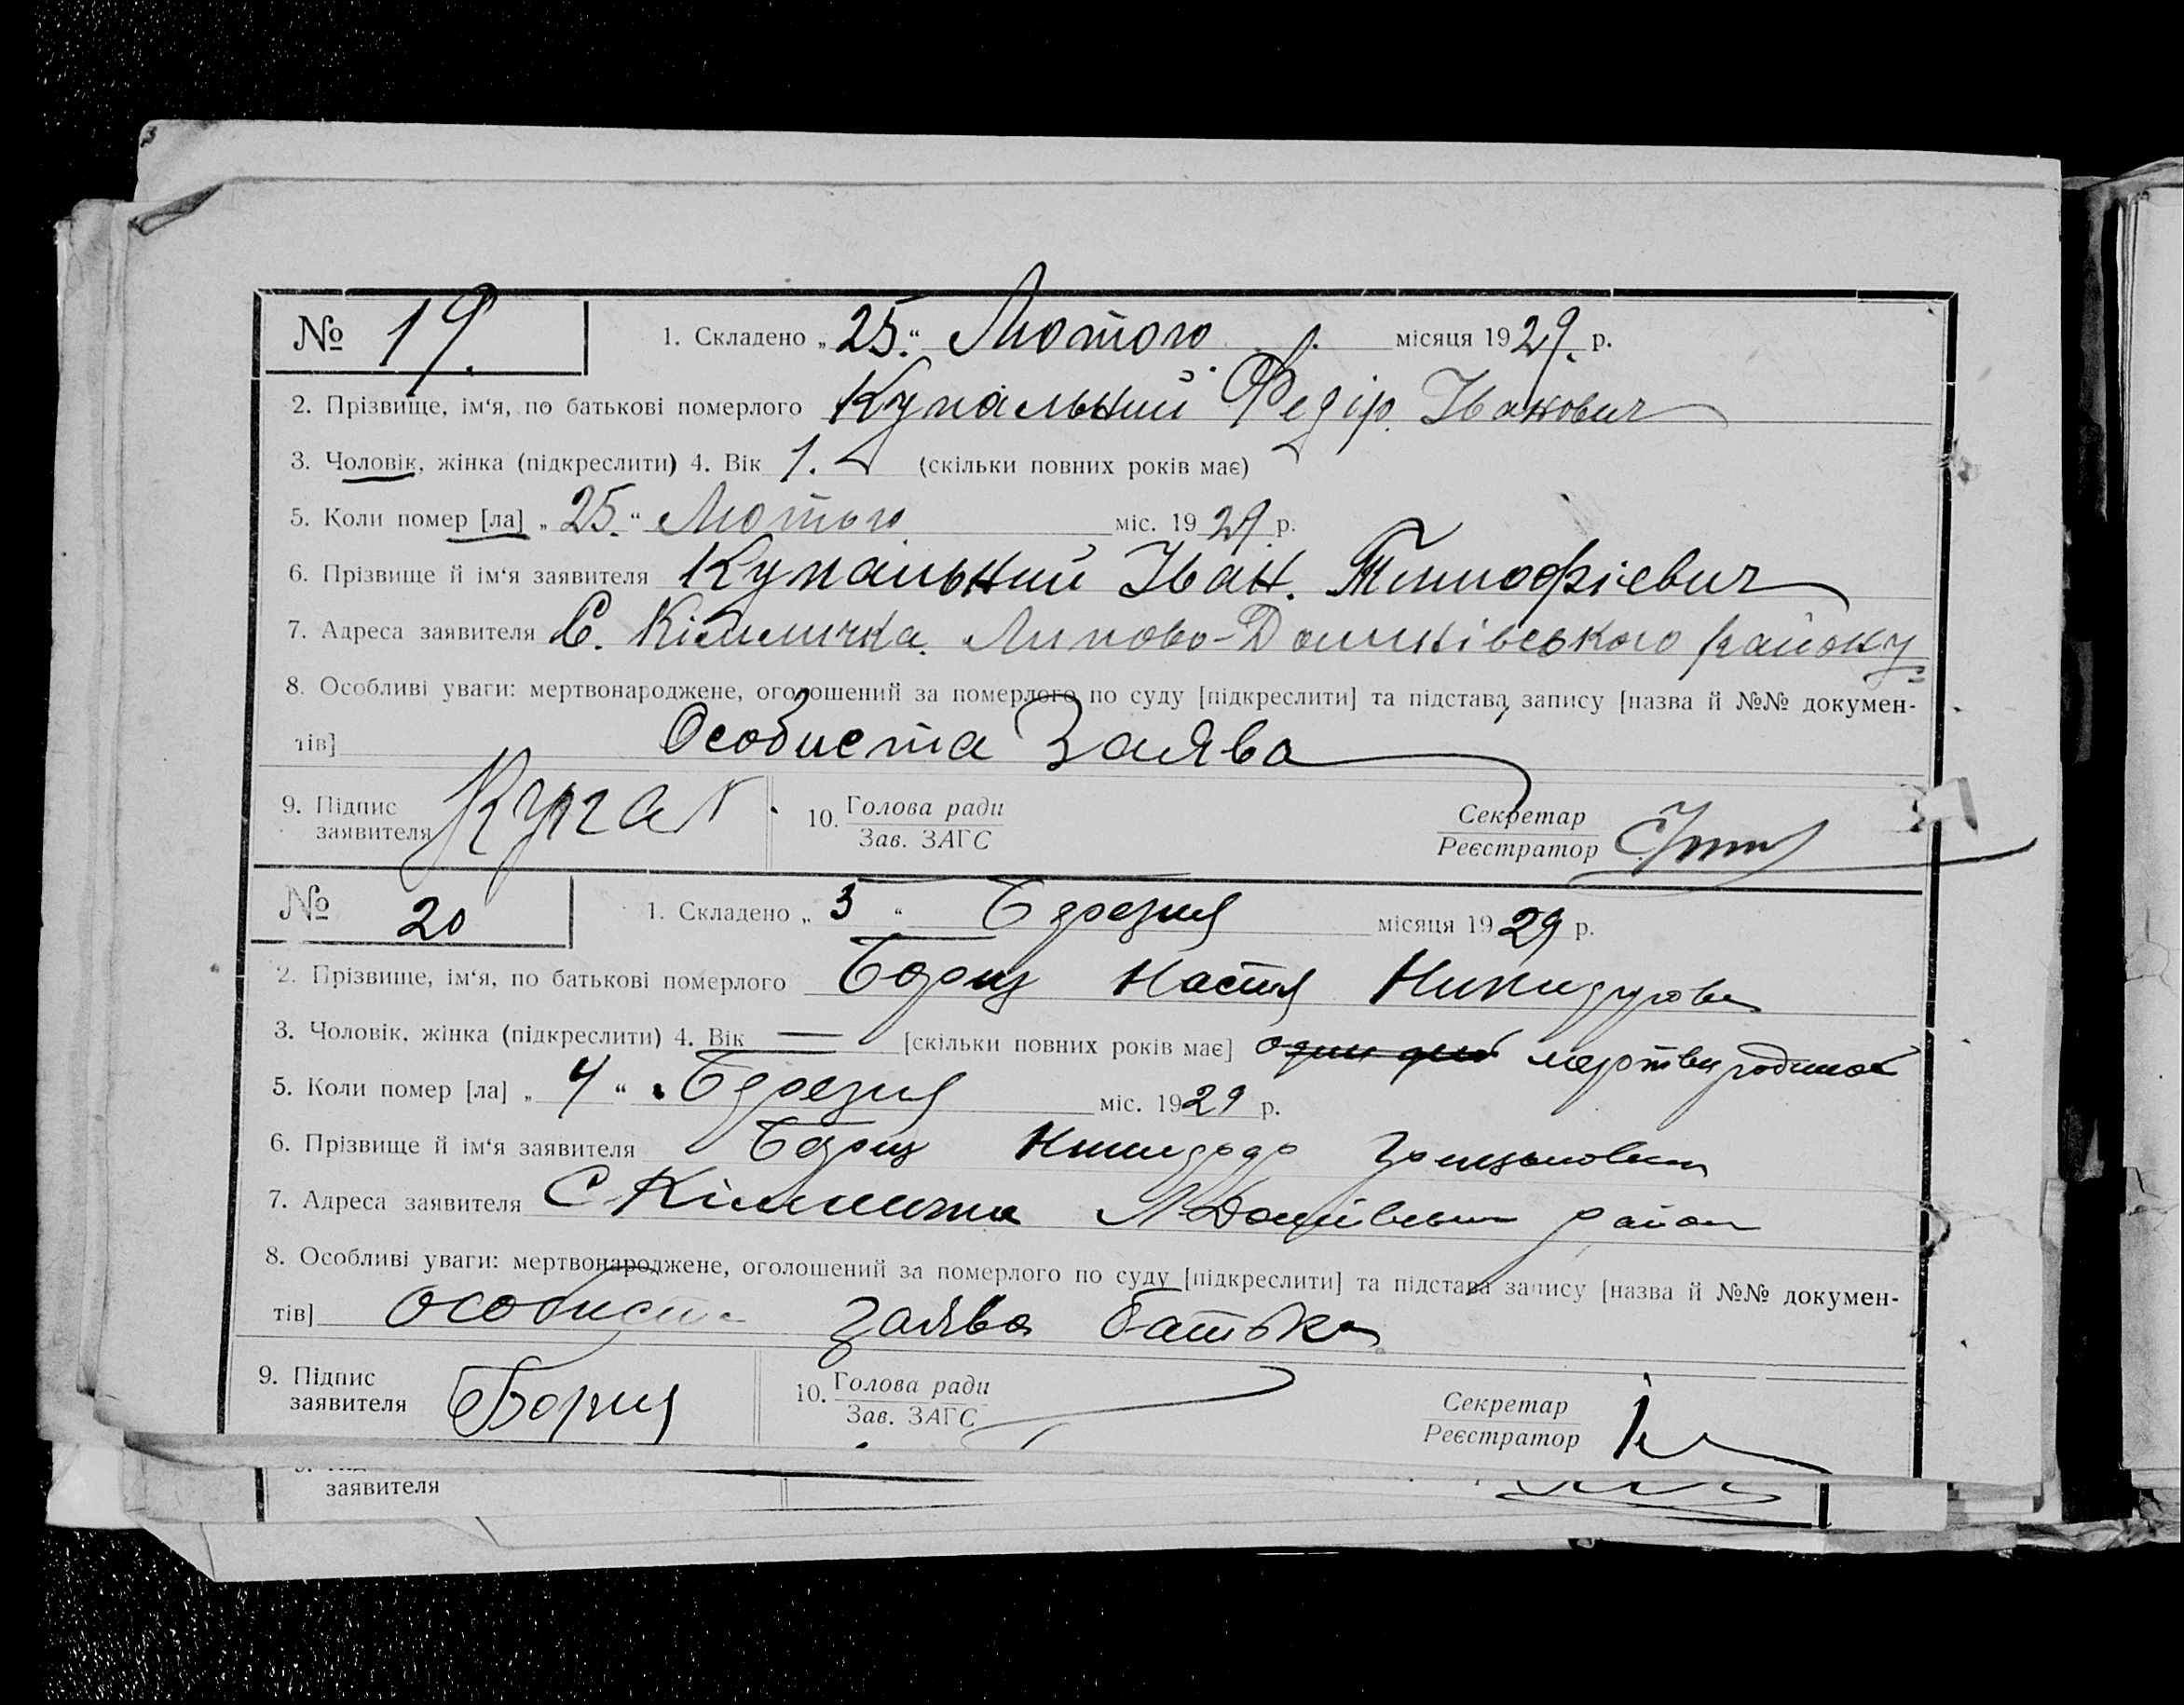 № 19. 1. Складено „25.“ Лютого місяця 1929. р.
2. Прізвище, ім‘я, по батькові померлого Купальний Федір. Іванович
3. Чоловік, жінка (підкреслити) 4. Вік 1. (скільки повних років має)
5. Коли помер [ла] „25.“ Лютого міс. 1929. р.
6. Прізвище й ім‘я заявителя Купальний Іван. Тимофієвич
7. Адреса заявителя С. Кішличка. Липово-Долинівського району
8. Особливі уваги: мертвонароджене, оголошений за померлого по суду [підкреслити] та підстава запису [назва й №№ докумен-
тів] Особиста Заява
9. Підпис
заявителя
10. Голова ради
Зав. ЗАГС
Секретар
Реєстратор
№ 20 1. Складено „5“ Березня місяця 1929 р.
2. Прізвище, ім‘я, по батькові померлого Борщ Настя
3. Чоловік, жінка (підкреслити) 4. Вік — [скільки повних років має]
5. Коли помер [ла] „4“ Березня міс. 1929 р.
6. Прізвище й ім‘я заявителя Борщ
7. Адреса заявителя С район
8. Особливі уваги: мертвонароджене, оголошений за померлого по суду [підкреслити] та підстава запису [назва й №№ докумен-
тів] особиста заява батька
9. Підпис
заявителя Борщ
10. Голова ради
Зав. ЗАГС
Секретар
Реєстратор
заявителя